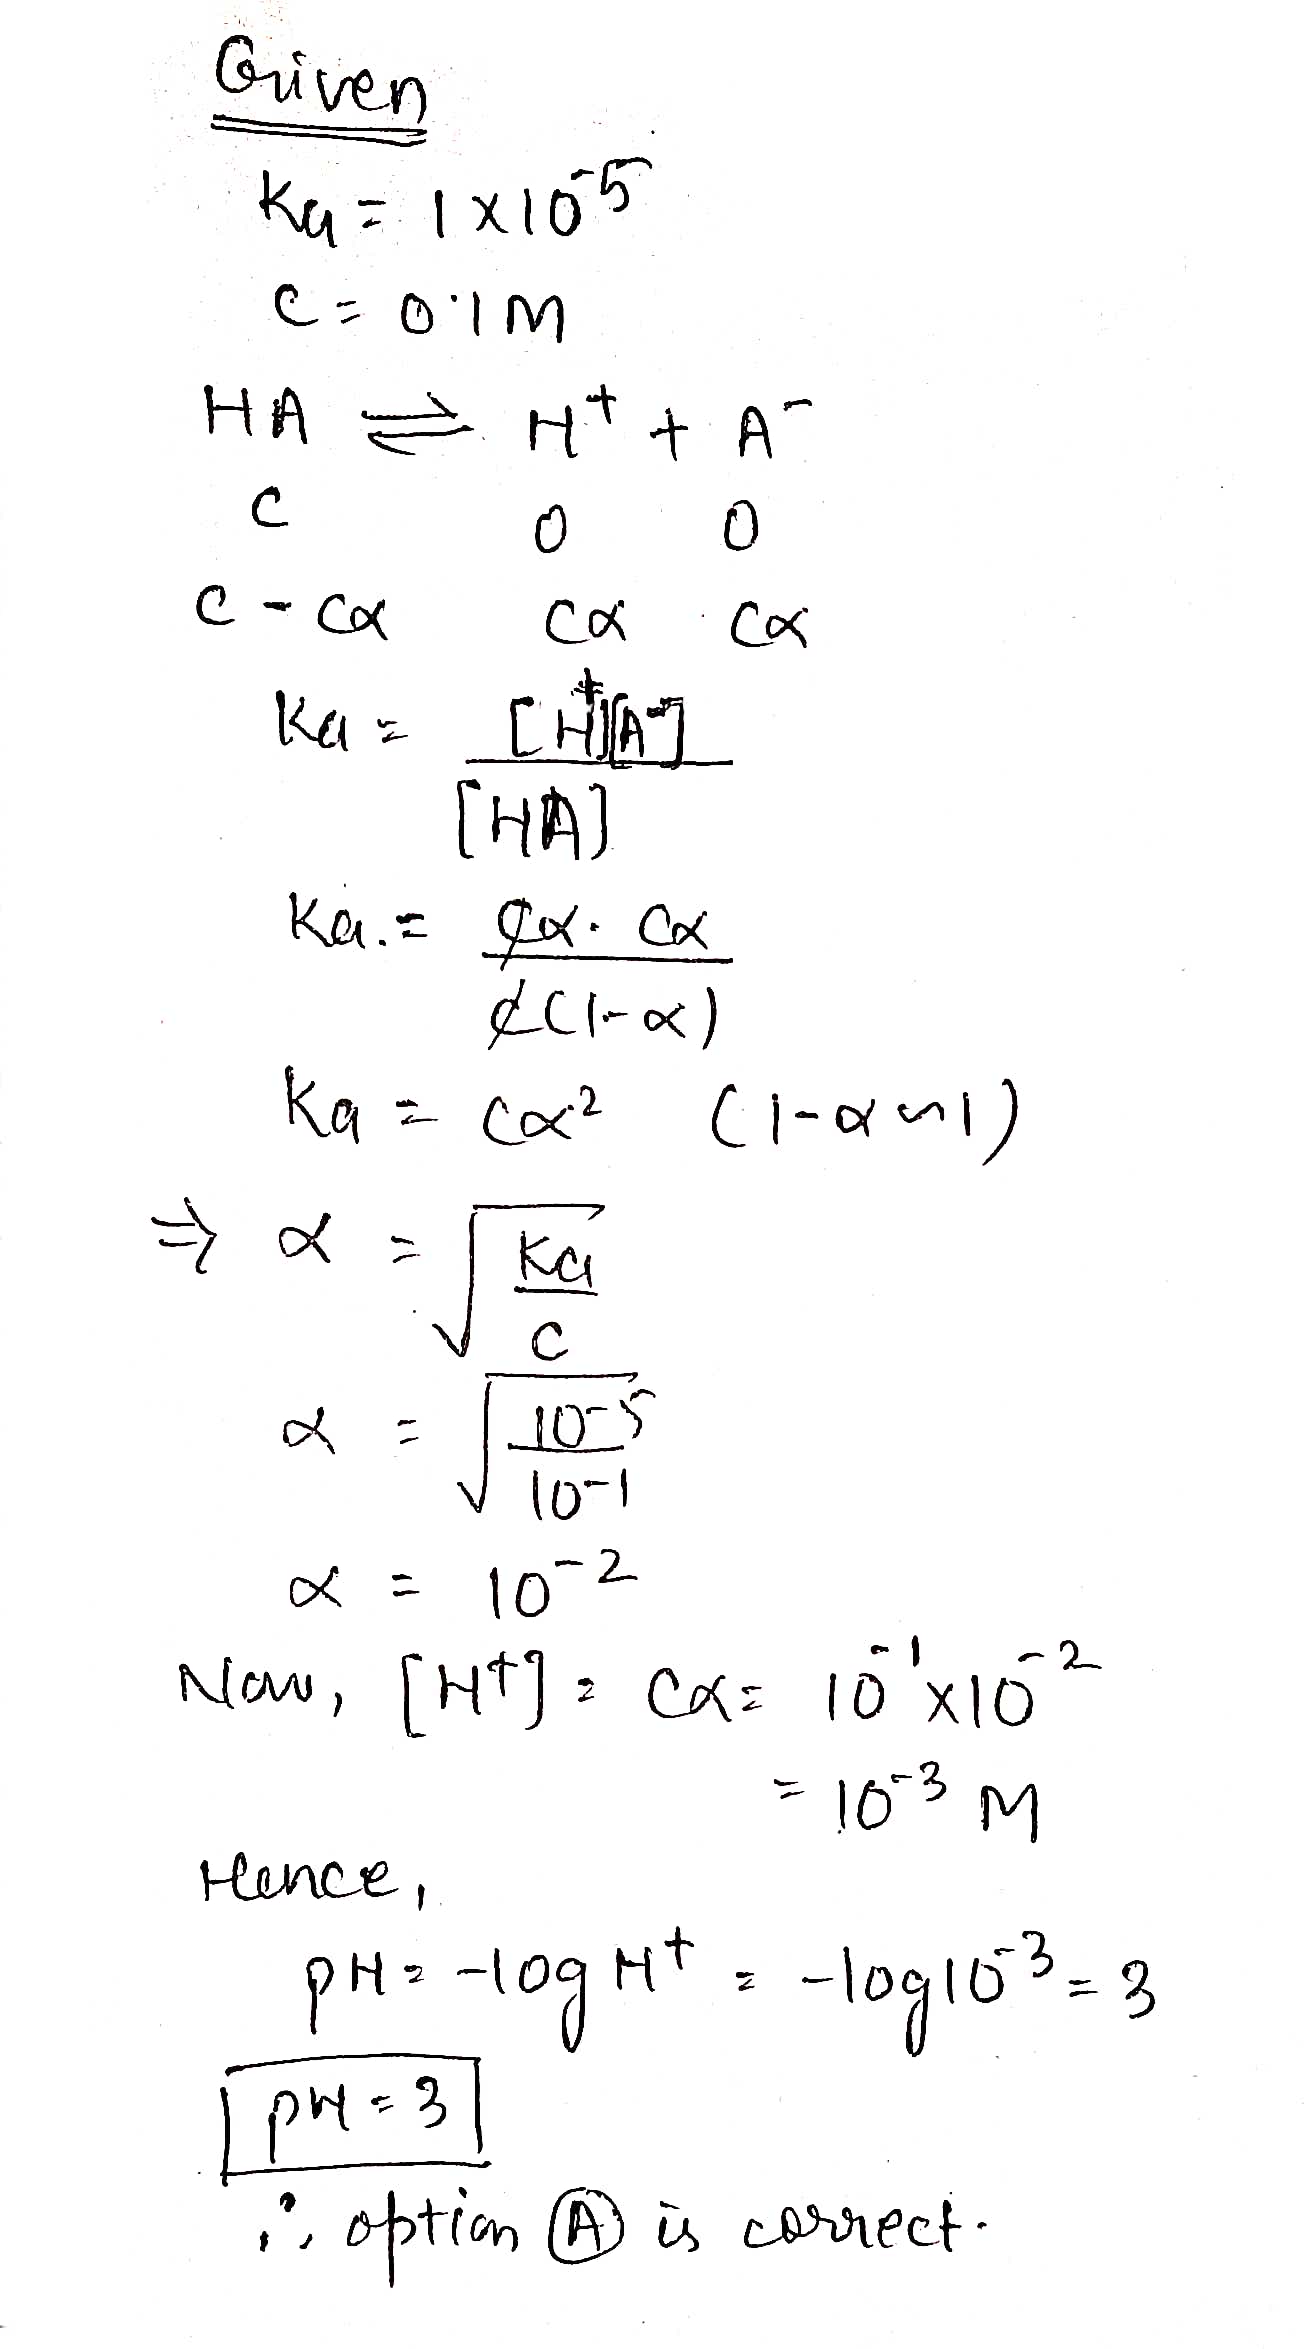 Given
Ka = 1 × 10⁻⁵
C = 0.1 M
HA ⇌ H⁺ + A⁻
C 0 0
C - Cα Cα Cα
Ka = [H⁺][A⁻]
[HA]
Ka = Cα. Cα
C(1-α)
Ka = Cα² (1-α ~ 1)
⇒ α = √ Ka
C
α = √ 10⁻⁵
10⁻¹
α = 10⁻²
Now, [H⁺] = Cα = 10⁻¹ × 10⁻²
= 10⁻³ M
Hence,
pH = -log H⁺ = -log 10⁻³ = 3
pH = 3
∴ option (A) is correct.